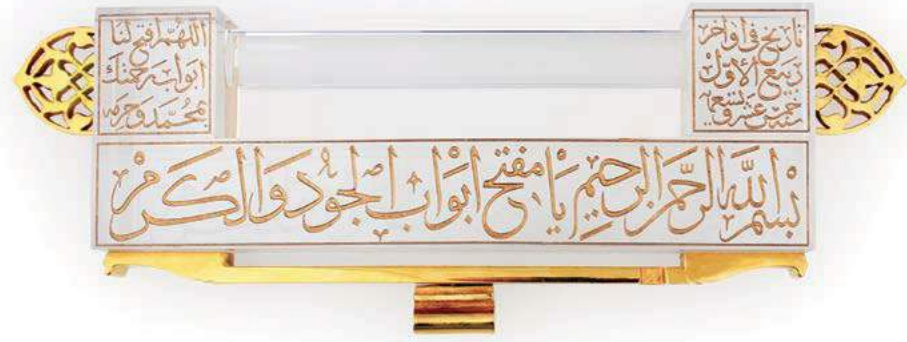 تاريخ في اواخر
ربيع الأوّل
خمس عشر و تسعمـ
اللهم افتح لنا
ابواب رحمتك
بمحمّد وحرمه
بسم الله الرحمن الرحيم يا مفتح ابواب الجود والكرم